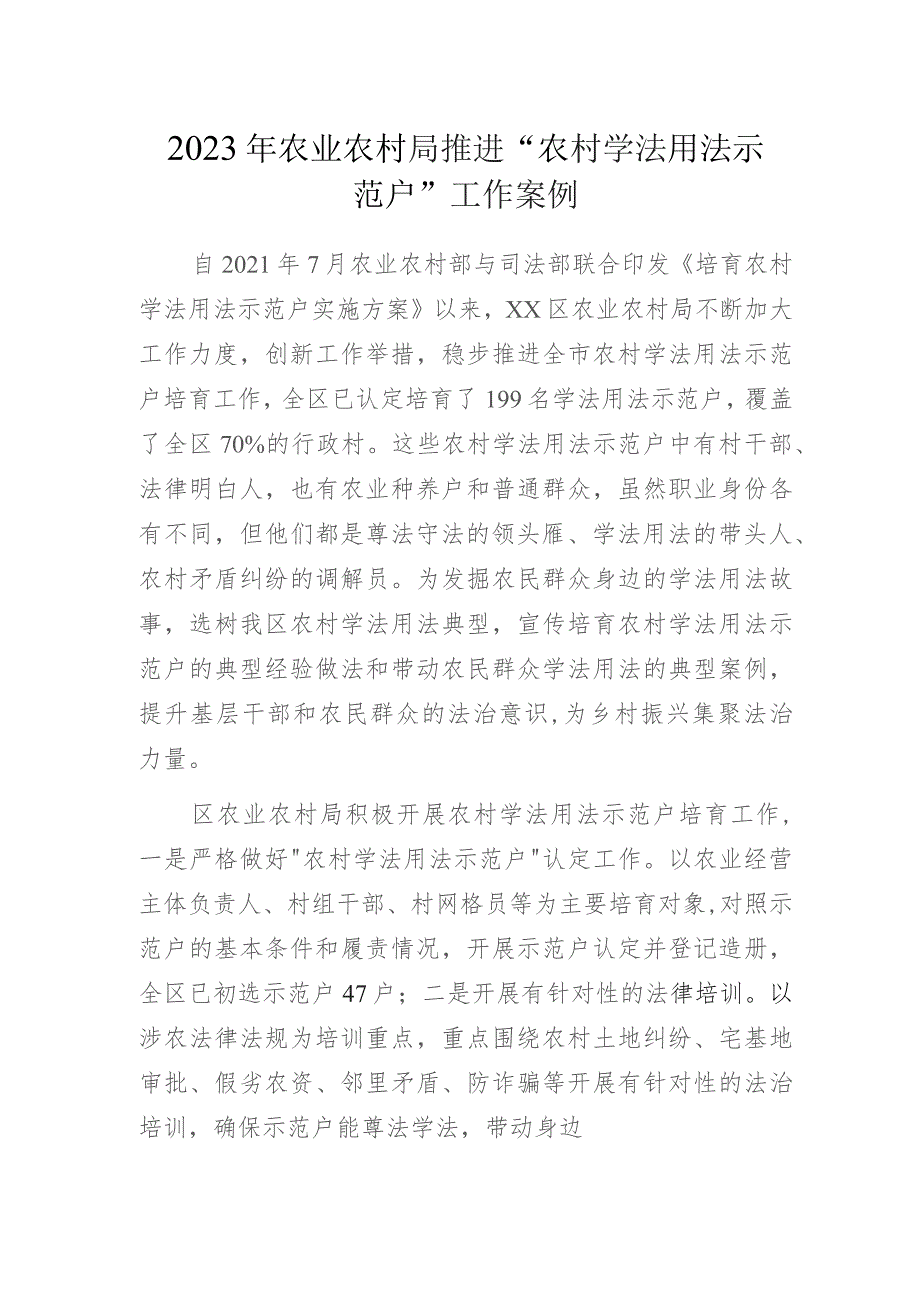 2023 年农业农村局推进“农村学法用法示
范户”工作案例
自 2021 年 7 月农业农村部与司法部联合印发《培育农村
学法用法示范户实施方案》以来，XX 区农业农村局不断加大
工作力度，创新工作举措，稳步推进全市农村学法用法示范
户培育工作，全区已认定培育了 199 名学法用法示范户，覆盖
了全区 70%的行政村。这些农村学法用法示范户中有村干部、
法律明白人，也有农业种养户和普通群众，虽然职业身份各
有不同，但他们都是尊法守法的领头雁、学法用法的带头人、
农村矛盾纠纷的调解员。为发掘农民群众身边的学法用法故
事，选树我区农村学法用法典型，宣传培育农村学法用法示
范户的典型经验做法和带动农民群众学法用法的典型案例，
提升基层干部和农民群众的法治意识,为乡村振兴集聚法治
力量。
区农业农村局积极开展农村学法用法示范户培育工作,
一是严格做好"农村学法用法示范户"认定工作。以农业经营
主体负责人、村组干部、村网格员等为主要培育对象,对照示
范户的基本条件和履责情况，开展示范户认定并登记造册，
全区已初选示范户 47 户；二是开展有针对性的法律培训。以
涉农法律法规为培训重点，重点围绕农村土地纠纷、宅基地
审批、假劣农资、邻里矛盾、防诈骗等开展有针对性的法治
培训，确保示范户能尊法学法，带动身边